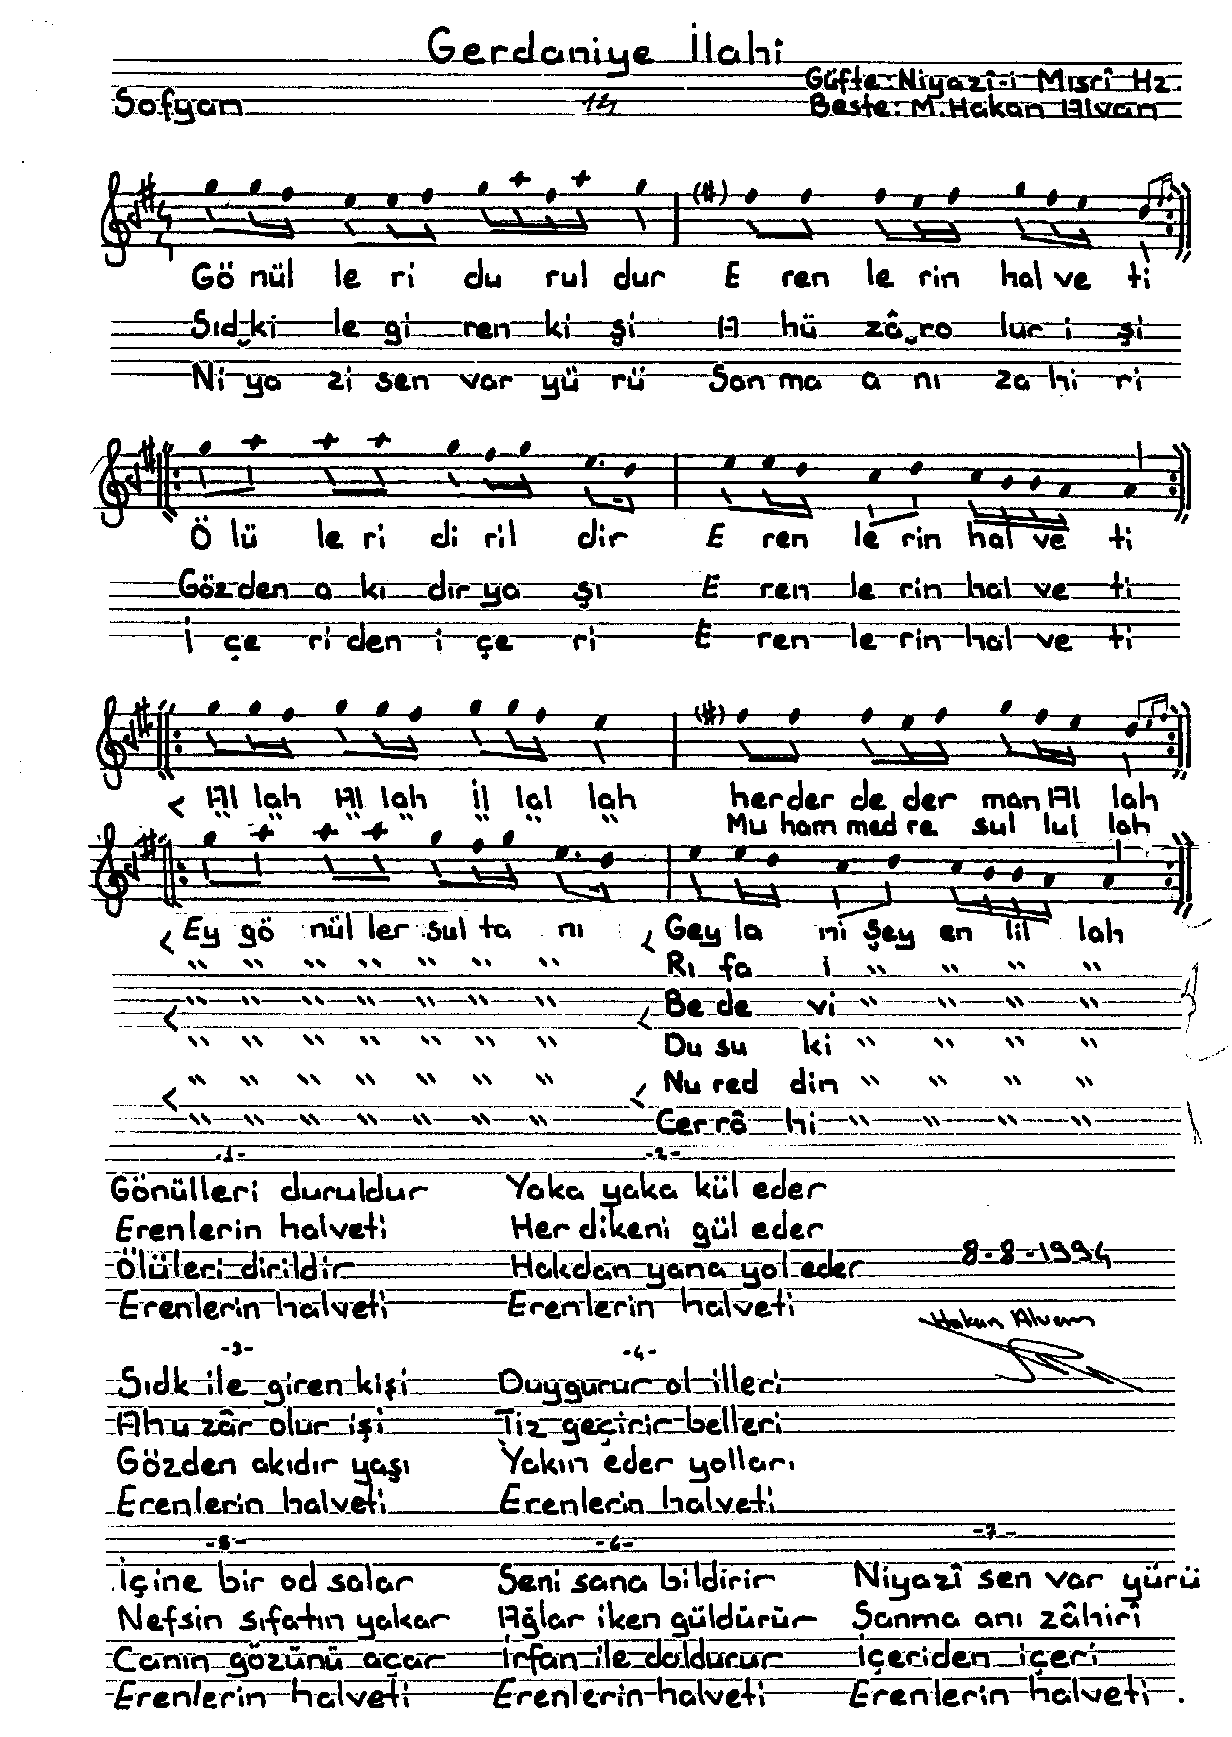 Gerdaniye İlahi
Güfte: Niyazî-i Mısrî Hz.
Sofyan
14
Beste: M. Hakan Alvan
Gö nül le ri du rul dur E ren le rin hal ve ti
Sıd ki le gi ren ki şi A hü zâ ro lur i şi
Ni ya zi sen var yü rü San ma a nı za hi ri
Ö lü le ri di ril dir E ren le rin hal ve ti
Göz den a kı dır ya şı E ren le rin hal ve ti
İ çe ri den i çe ri E ren le rin hal ve ti
Al lah Al lah İl lal lah her der de der man Al lah
" " " " " " " Mu ham med re sul lul lah
Ey gö nül ler sul ta nı Gey la ni şey en lil lah
" " " " " " " Rı fa i " " " "
" " " " " " " Be de vi " " " "
" " " " " " " Du su ki " " " "
" " " " " " " Nu red din " " " "
" " " " " " " Cer râ hi " " " "
-1-
Gönülleri duruldur
Erenlerin halveti
Ölüleri dirildir
Erenlerin halveti
-2-
Yaka yaka kül eder
Her dikeni gül eder
Hakdan yana yol eder
Erenlerin halveti
8-8-1994
Hakan Alvan
-3-
Sıdk ile giren kişi
Ahu zâr olur işi
Gözden akıdır yaşı
Erenlerin halveti
-4-
Duygurur ol illeri
Tiz geçirir belleri
Yakın eder yolları
Erenlerin halveti
-5-
İçine bir od salar
Nefsin sıfatın yakar
Canın gözünü açar
Erenlerin halveti
-6-
Seni sana bildirir
Ağlar iken güldürür
İrfan ile doldurur
Erenlerin halveti
-7-
Niyazî sen var yürü
Sanma anı zâhirî
İçeriden içeri
Erenlerin halveti.